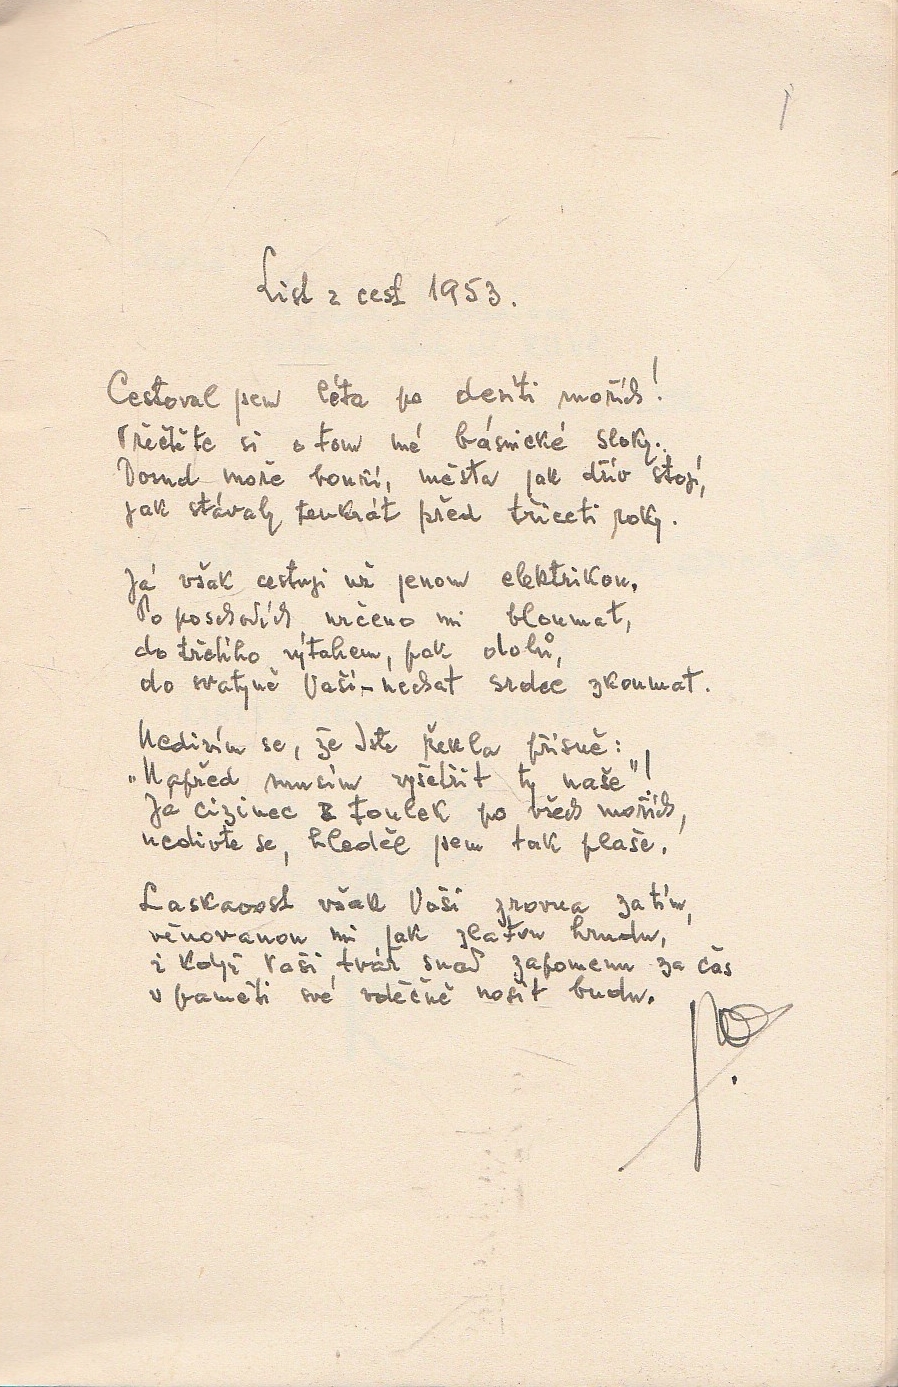 List z cest 1953.
Cestoval jsem léta po desíti mořích!
Přečtěte si o tom mé básnické sloky.
Dosud moře bouří, města jak dřív stojí,
jak stávaly tenkrát před třiceti roky.
Já však cestuji už jenom elektrikou.
Po poschodích určeno mi bloumat,
do třetího výtahem, pak dolů,
do svatyně Vaší – nechat srdce zkoumat.
Nedivím se, že Jste řekla přísně:
„Napřed musím vyšetřit ty naše"!
Já cizinec z toulek po všech mořích,
nedivte se, hleděl jsem tak plaše.
Laskavost však Vaši zrovna zatím,
věnovanou mi jak zlatou hrudu,
i když Vaši tvář snad zapomenu za čas
v paměti své vděčně nosit budu.